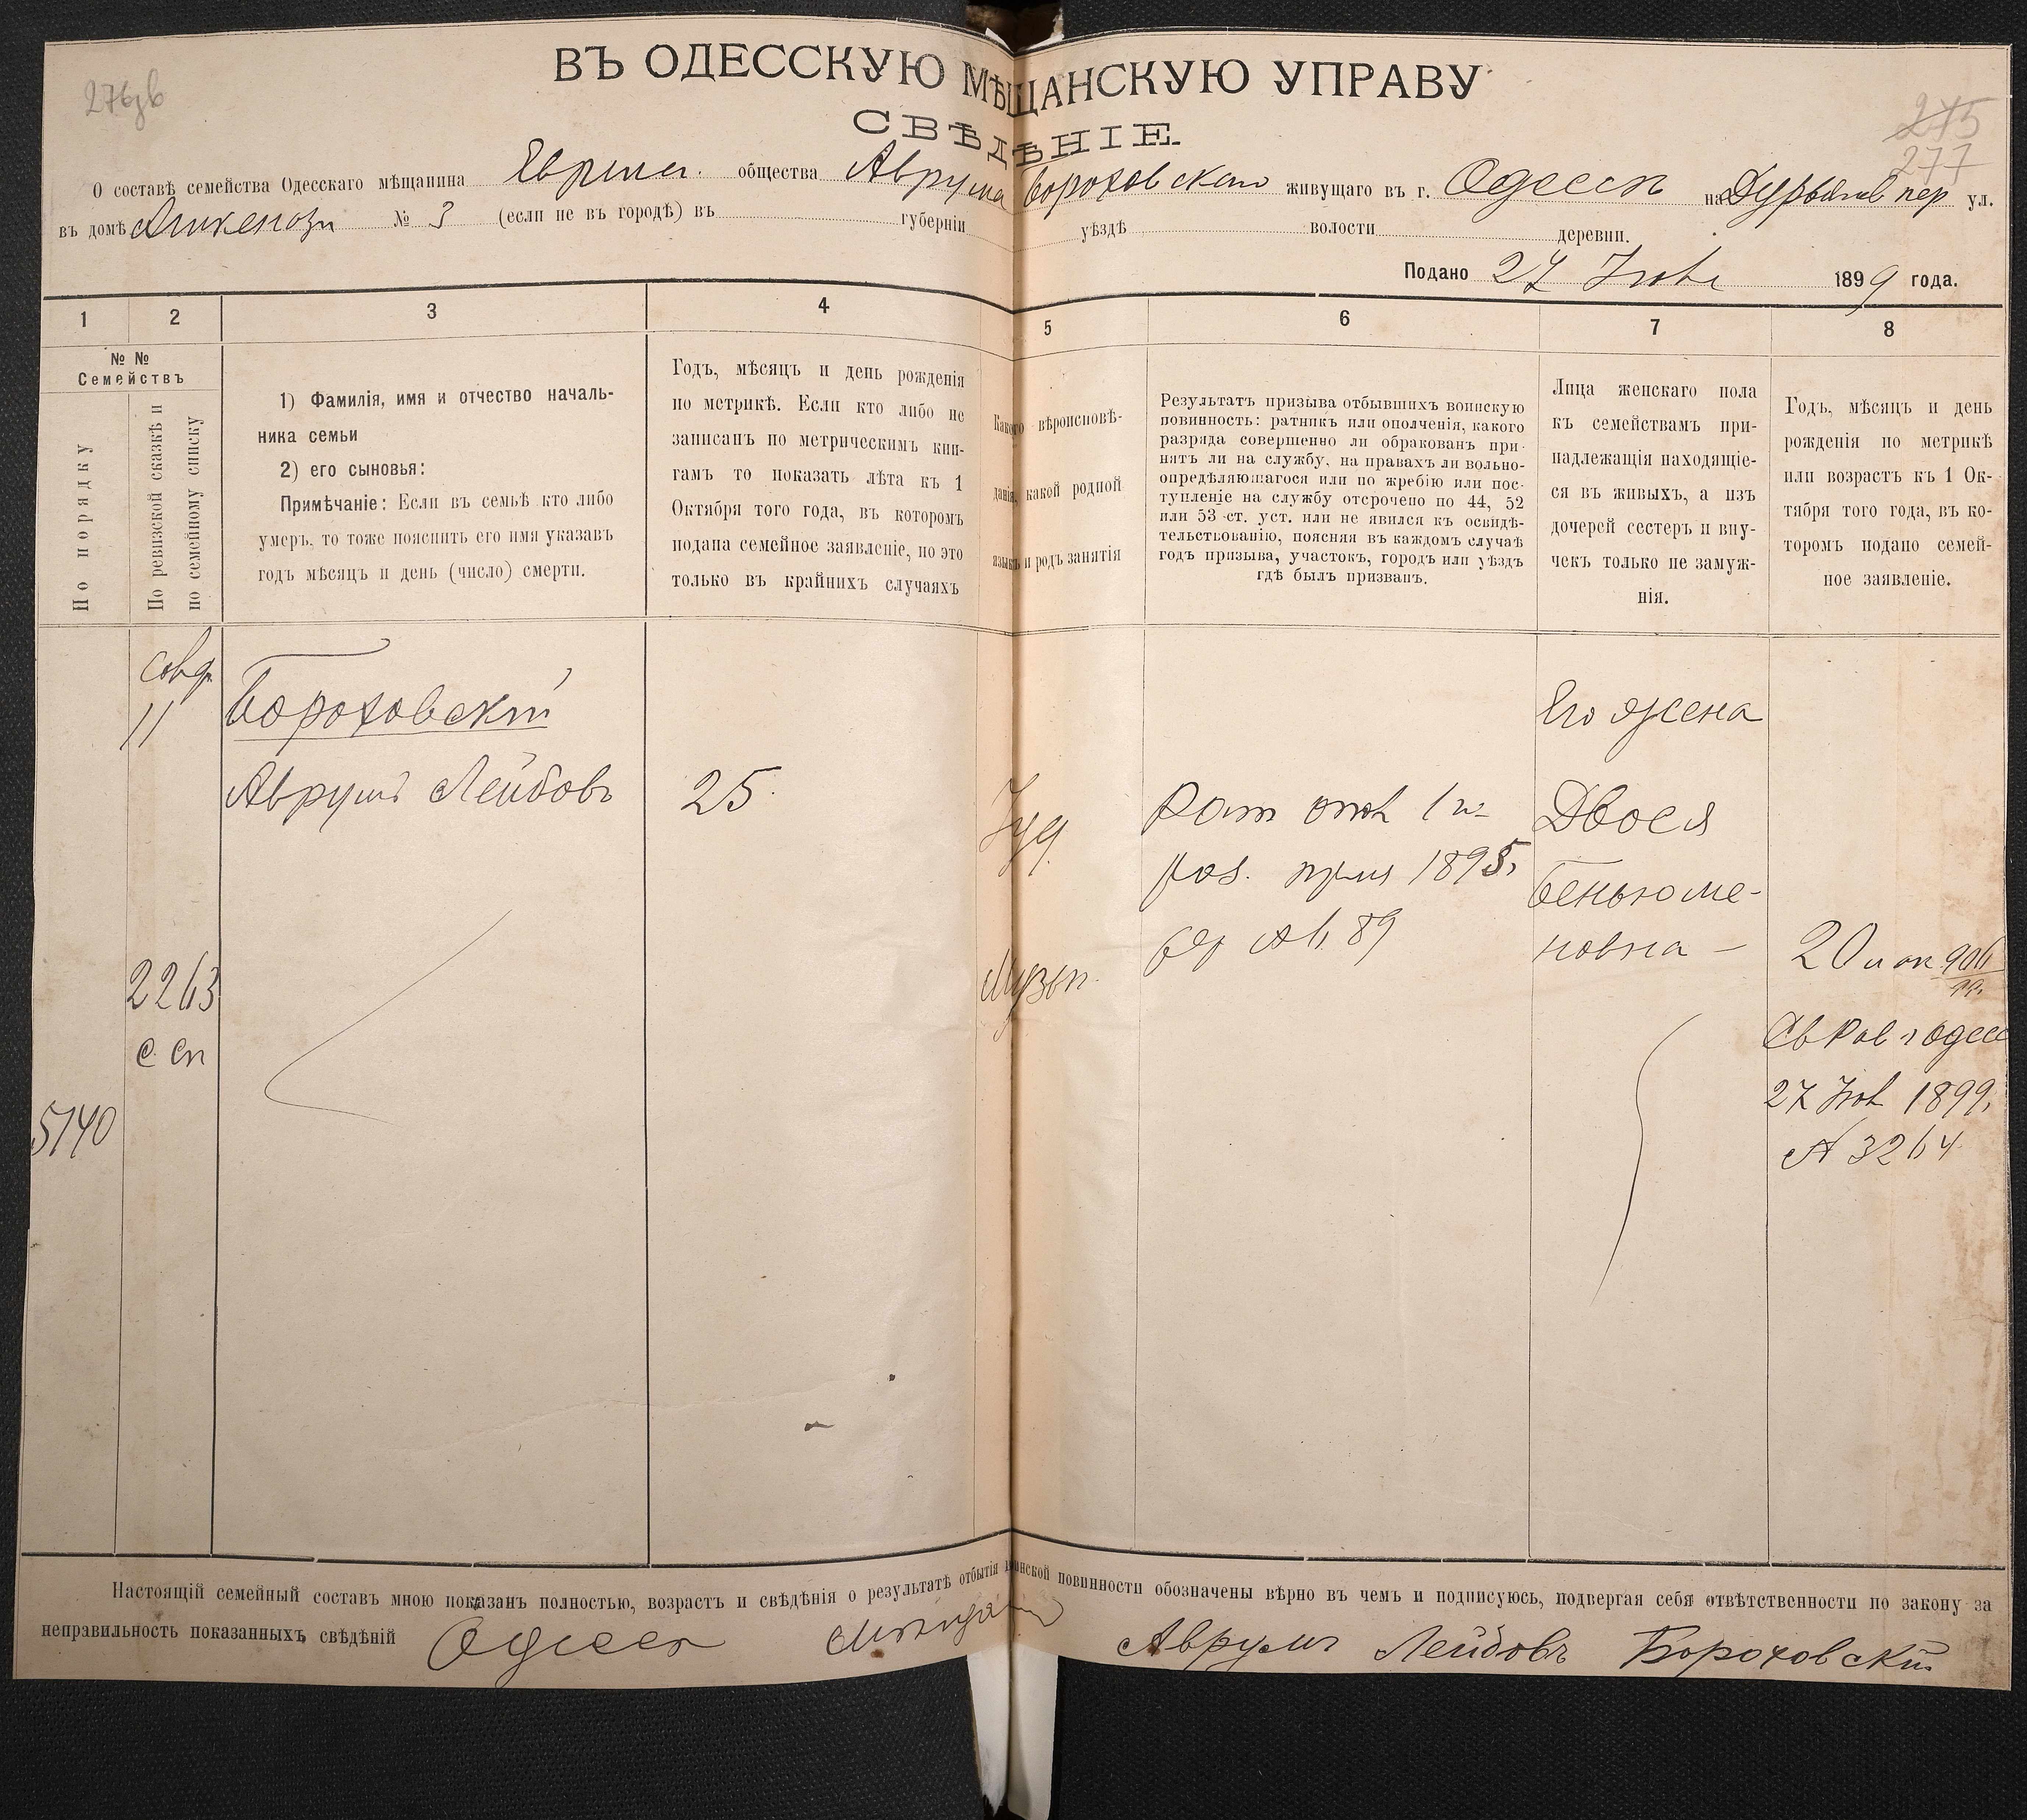 ВЪ ОДЕССКУЮ МѢЩАНСКУЮ УПРАВУ
СВѢДѢНІЕ.
275
277
О составѣ семейства Одесскаго мѣщанина общества Аврума Бороховскаго живущаго въ г. Одессѣ на пер ул.
въ домѣ № 3 (если не въ городѣ) въ губерніи уѣздѣ волости деревни.
Подано 27 1899 года.
1 2 3 4 5 6 7 8
№ №
Семействъ
По порядку
По ревизской сказкѣ и
по семейному списку
1) Фамилія, имя и отчество началь-
ника семьи
2) его сыновья:
Примѣчаніе: Если въ семьѣ кто либо
умеръ, то тоже пояснить его имя указавъ
годъ мѣсяцъ и день (число) смерти.
Годъ, мѣсяцъ и день рожденія
по метрикѣ. Если кто либо не
записанъ по метрическимъ кни-
гамъ то показать лѣта къ 1
Октября того года, въ которомъ
подана семейное заявленіе, но это
только въ крайнихъ случаяхъ
Какого вѣроисповѣ-
данія, какой родной
языкъ и родъ занятія
Результатъ призыва отбывшихъ воинскую
повинность: ратникъ или ополченія, какого
разряда совершенно ли обракованъ при-
нятъ ли на службу, на правахъ ли вольно-
опредѣляющагося или по жребію или пос-
тупленіе на службу отсрочено по 44, 52
или 53 ст. уст. или не явился къ освидѣ-
тельствованію, поясняя въ каждомъ случаѣ
годъ призыва, участокъ, городъ или уѣздъ
гдѣ былъ призванъ.
Лица женскаго пола
къ семействамъ при-
надлежащія находящіе-
ся въ живыхъ, а изъ
дочерей сестеръ и вну-
чекъ только не замуж-
нія.
Годъ, мѣсяцъ и день
рожденія по метрикѣ
или возрастъ къ 1 Ок-
тября того года, въ ко-
торомъ подано семей-
ное заявленіе.
11
2263
с. сп
5140
Бороховскій
Аврумъ Лейбовъ
25
Іуд.
Рат опол 1
раз. 1895
89
Его жена
Двося
Беньюме-
новна —
20
Св Рав г Одес
27 1899
№ 3264
Настоящій семейный составъ мною показанъ полностью, возрастъ и свѣдѣнія о результатѣ отбытія воинской повинности обозначены вѣрно въ чемъ и подписуюсь, подвергая себя отвѣтственности по закону за
неправильность показанныхъ свѣдѣній Аврумъ Лейбовъ Бороховскій